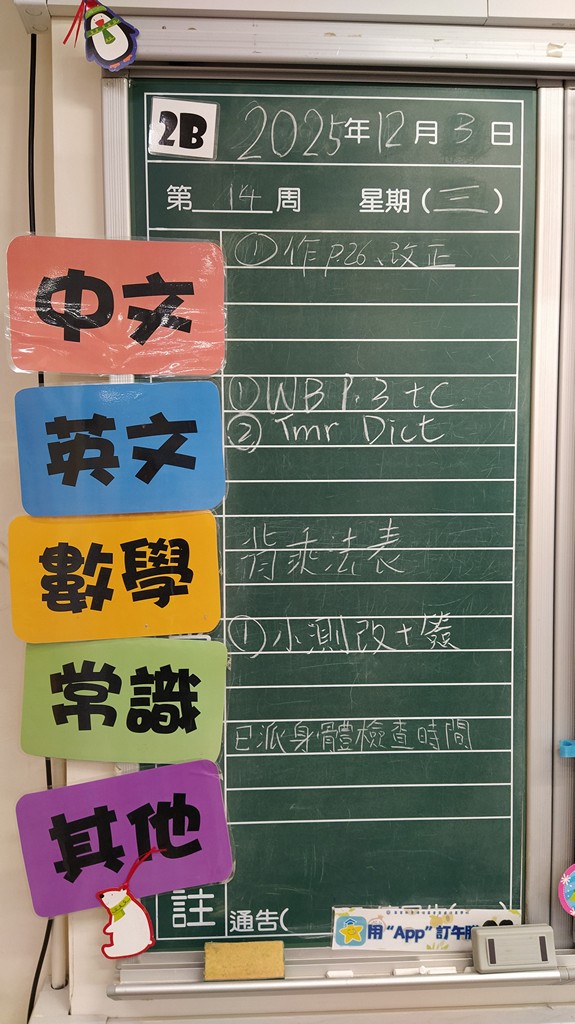 2B 2025年12月3日
第 14 周 星期(三)
中文
① 作 p.26、改正
英文
① WB P.3 + C
② Tmr Dict
數學
背乘法表
常識
① 小測改+簽
其他
已派身體檢查時間
註 通告(
用"App"訂午